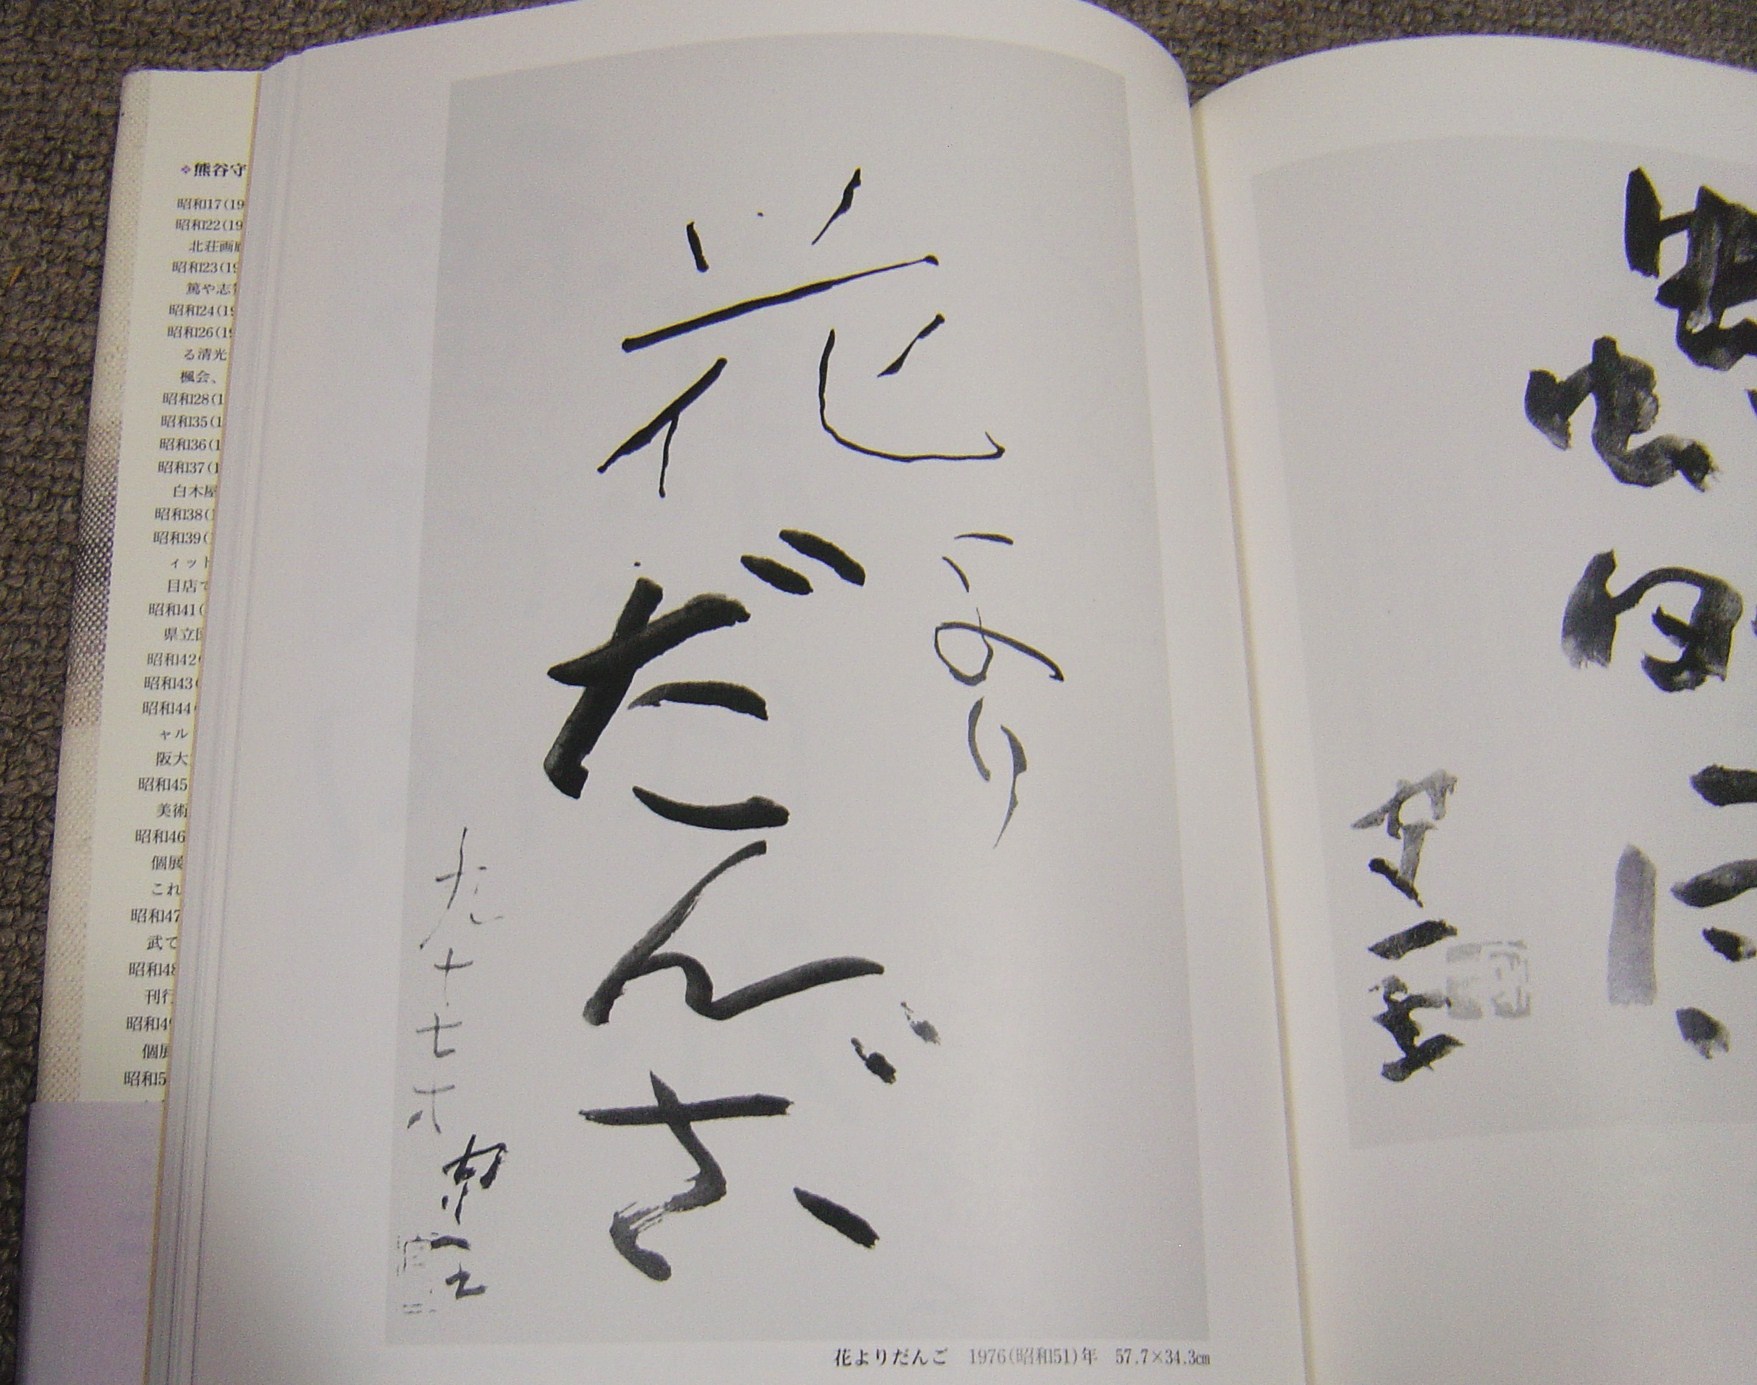 ❖熊谷守
昭和17(19
昭和22(19
北荘画廊
昭和23(19
篤や志賀
昭和24(19
昭和26(19
る清光
楓会、
昭和28(1
昭和35(1
昭和36(1
昭和37(1
白木屋
昭和38(1
昭和39(
ィット
目店で
昭和41(
県立
昭和42(
昭和43(
昭和44
ャル
阪大
昭和45
美術
昭和46
個展
これ
昭和47
武で
昭和48
刊行
昭和49
個展
昭和5
花
より
だんご
九十七才
守一
花よりだんご 1976(昭和51)年 57.7×34.3cm
守一